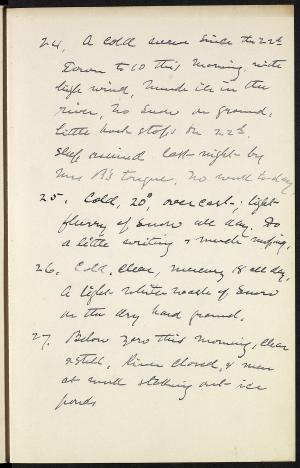 24. A cold wave since the 22d
Down to 10 this morning, with
high wind, much ice in the
river, no snow on ground,
little work stops on 22d.
Sleep ruined last night by
Mrs B's tongue, no work to-day
25. Cold, 20°, overcast, light
flurry of snow all day. Do
a little writing & much
26. Cold, clear, mercury 18 all day,
A light white wash of snow
on the dry hard ground.
27. Below zero this morning, clear
& still, River closed, & men
at work staking out ice
ponds